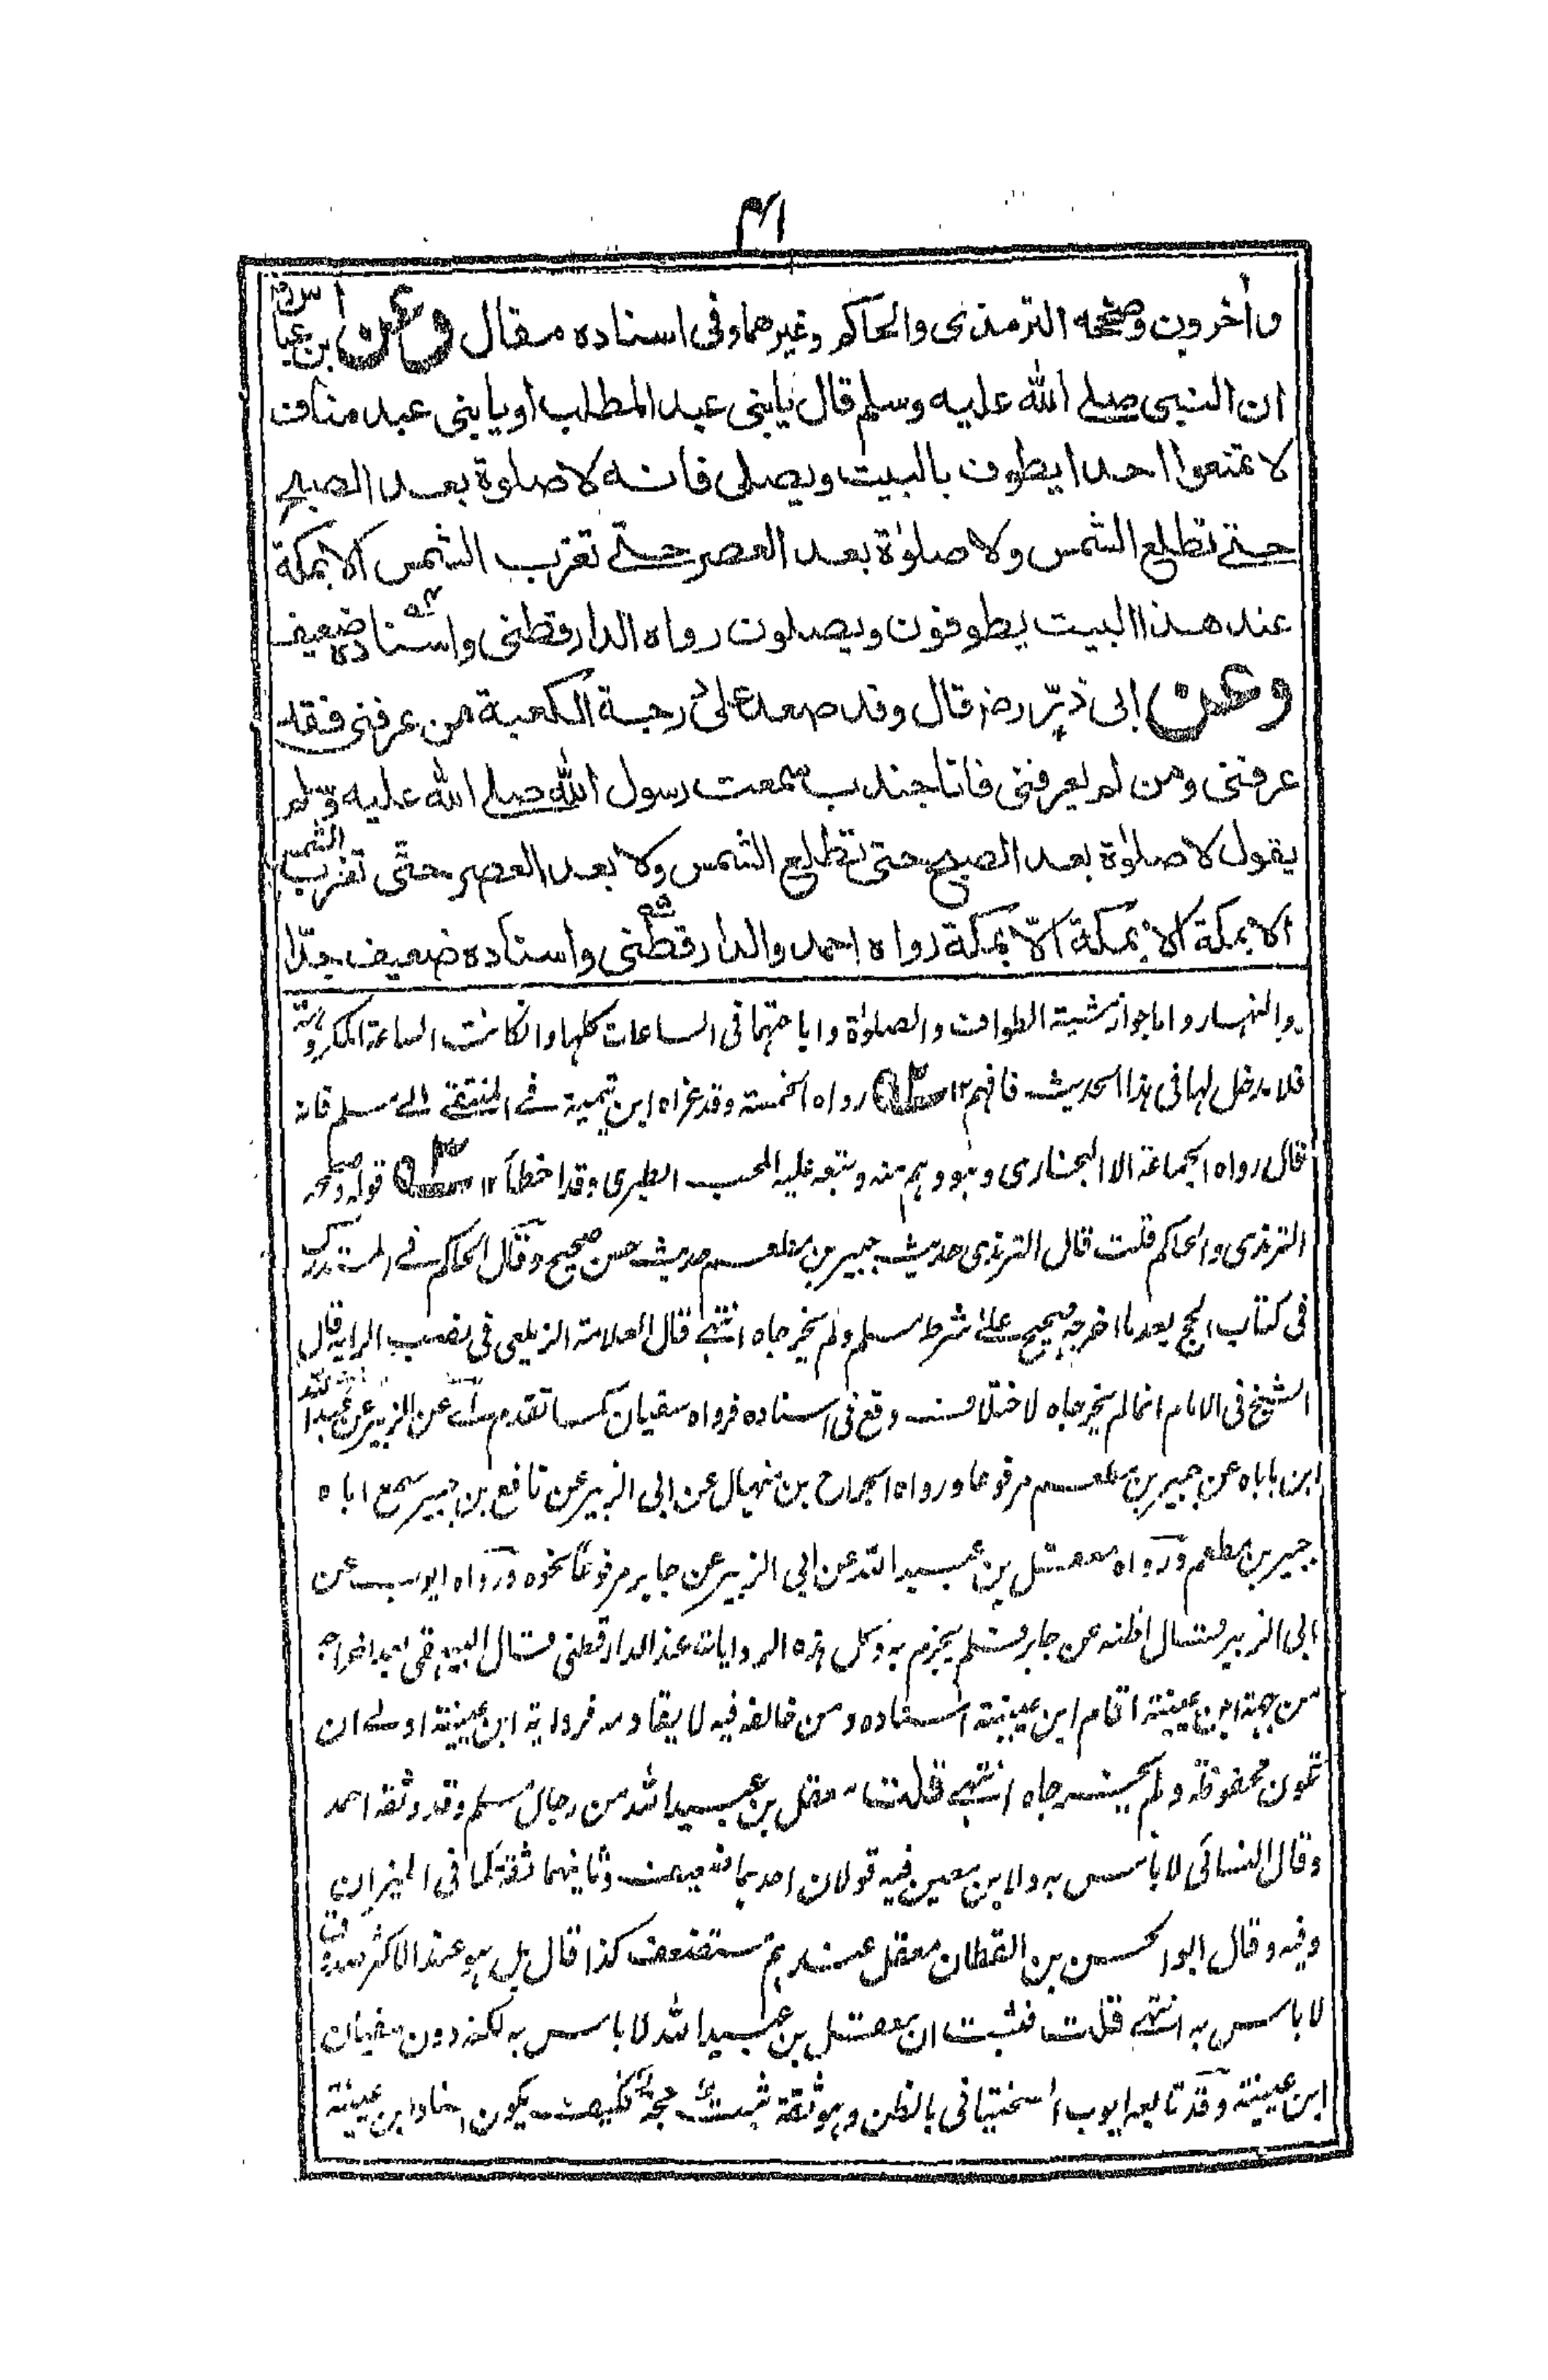 ٤١
وأخرون وصححه الترمذى والحاكم وغيرهما وفى اسناده مقال وعن ابن عباس
ان النبى صلى الله عليه وسلم قال يا بنى عبد المطلب او يا بنى عبد مناف
لا تمنعوا احدا يطوف بالبيت ويصلى فانه لا صلوة بعد الصبح
حتى تطلع الشمس ولا صلوة بعد العصر حتى تغرب الشمس الا بمكة
عند هذا البيت يطوفون ويصلون رواه الدارقطنى واسناده ضعيف
وعن ابى ذر رض قال وقد صعد على درجة الكعبة من عرفنى فقد
عرفنى ومن لم يعرفنى فانا جندب سمعت رسول الله صلى الله عليه وسلم
يقول لا صلوة بعد الصبح حتى تطلع الشمس ولا بعد العصر حتى تغرب الشمس
الا بمكة الا بمكة الا بمكة رواه احمد والدارقطنى واسناده ضعيف جدّا
والنهار واما جواز مشيته الطواف والصلوة واباحتهما فى الساعات كلها وانكانت الساعة المكروهة
فلا مدخل لها فى هذا الحديث فافهم ١٢ رواه الخمسة وقد عزاه ابن تيمية فى المنتقى الى مسلم فانه
قال رواه الجماعة الا البخارى وهو وهم منه وتبعه عليه المحب الطبرى وقد اخطأ ١٢ قوله وصححه
الترمذى والحاكم قلت قال الترمذى حديث جبير بن مطعم حديث حسن صحيح وقال الحاكم فى المستدرك
فى كتاب الحج بعد ما اخرجه صحيح على شرط مسلم ولم يخرجاه انتهى قال العلامة الزيلعى فى نصب الراية قال
الشيخ فى الامام انما لم يخرجاه لاختلاف وقع فى اسناده فرواه سفيان كما تقدم عن ابى الزبير عن عبد الله
ابن باباه عن جبير بن مطعم مرفوعا ورواه الجراح بن منهال عن ابى الزبير عن نافع بن جبير سمع اباه
جبير بن مطعم ورواه معقل بن عبيد الله عن ابى الزبير عن جابر مرفوعًا نحوه ورواه ايوب عن
ابى الزبير فقال اظنه عن جابر فلم يجزم به وكل هذه الروايات عند الدارقطنى قال البيهقى بعد اخراجه
من جهة ابن عيينة اقام ابن عيينة اسناده ومن خالفه فيه لا يقاومه فرواية ابن عيينة اولى ان
تكون محفوظة ولم يخرجاه انتهى قلت معقل بن عبيد الله من رجال مسلم وقد وثقه احمد
وقال النسائى لا باس به ولابن معين فيه قولان احدهما ضعيف وثانيهما ثقة كما فى الميزان
وفيه وقال ابو الحسن بن القطان معقل عندهم مستضعف كذا قال بل هو عند الاكثر صدوق
لا باس به انتهى قلت فثبت ان معقل بن عبيد الله لا باس به لكنه دون سفيان
ابن عيينة وقد تابعه ايوب السختيانى بالظن وهو ثقة ثبت حجة فكيف يكون اسناد ابن عيينة